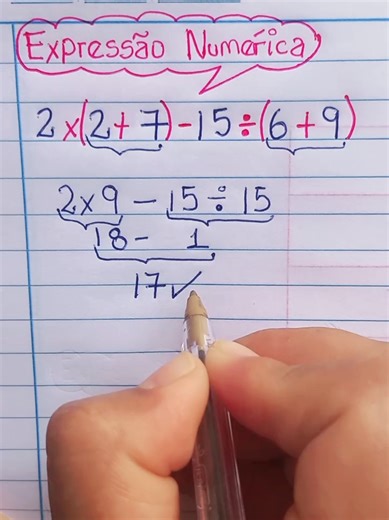 Expressão Numérica
2×(2+7)-15÷(6+9)
2×9 - 15÷15
18- 1
17✓